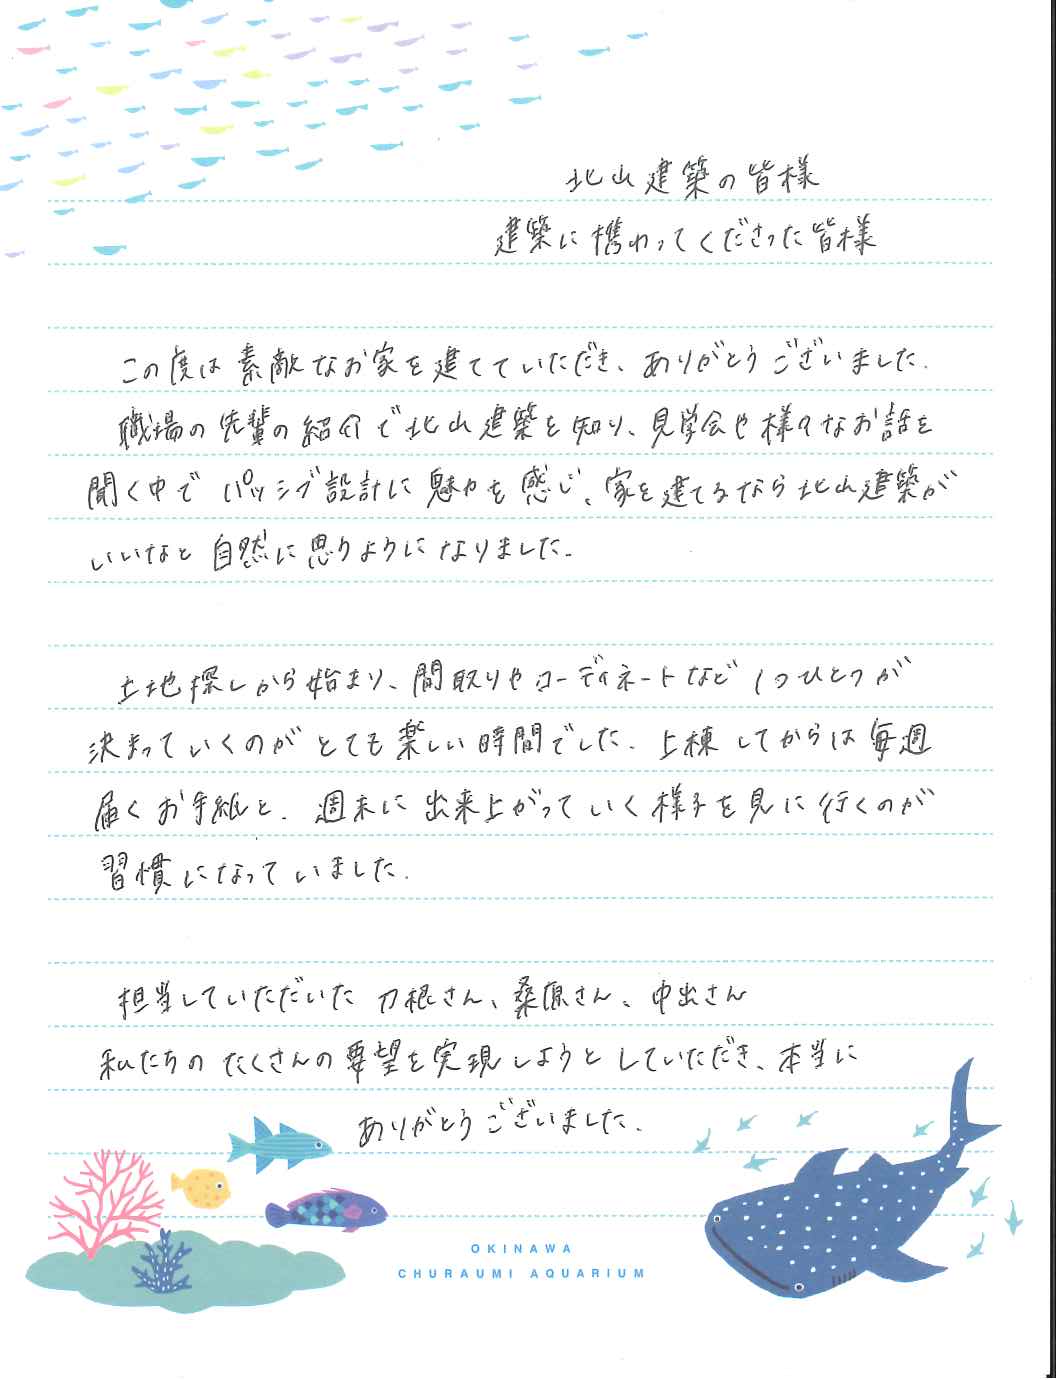 北山建築の皆様
建築に携わってくださった皆様
この度は素敵なお家を建てていただき、ありがとうございました.
職場の先輩の紹介で北山建築を知り、見学会や様々なお話を
聞く中でパッシブ設計に魅力を感じ、家を建てるなら北山建築が
いいなと自然に思うようになりました.
土地探しから始まり、間取りやコーディネートなど1つひとつが
決まっていくのがとても楽しい時間でした. 上棟してからは毎週
届くお手紙と、週末に出来上がっていく様子を見に行くのが
習慣になっていました.
担当していただいた刀根さん、桑原さん、中出さん
私たちのたくさんの要望を実現しようとしていただき、本当に
ありがとうございました.
OKINAWA
CHURAUMI AQUARIUM